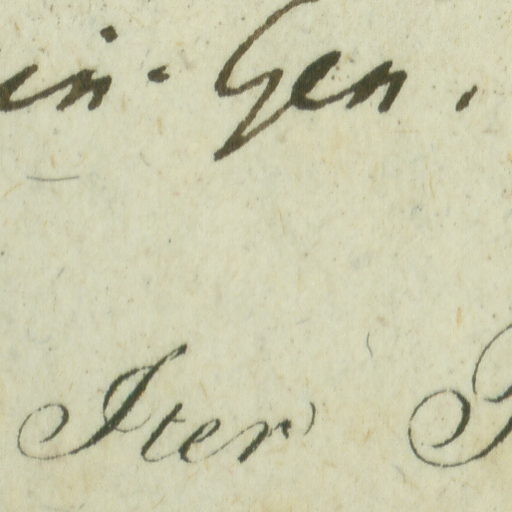 in. Gen.
Iter